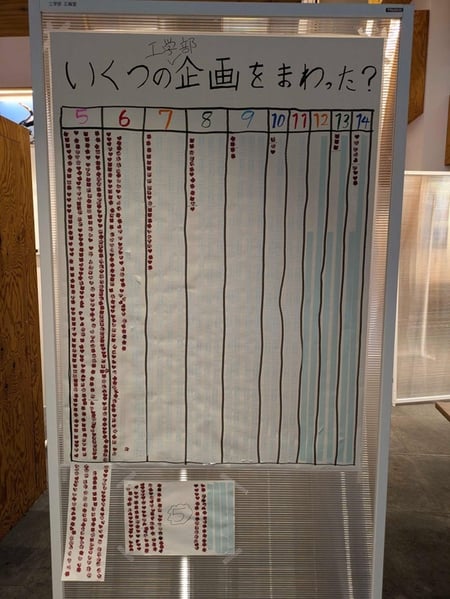 工学部
いくつの企画をまわった?
5 6 7 8 9 10 11 12 13 14
5